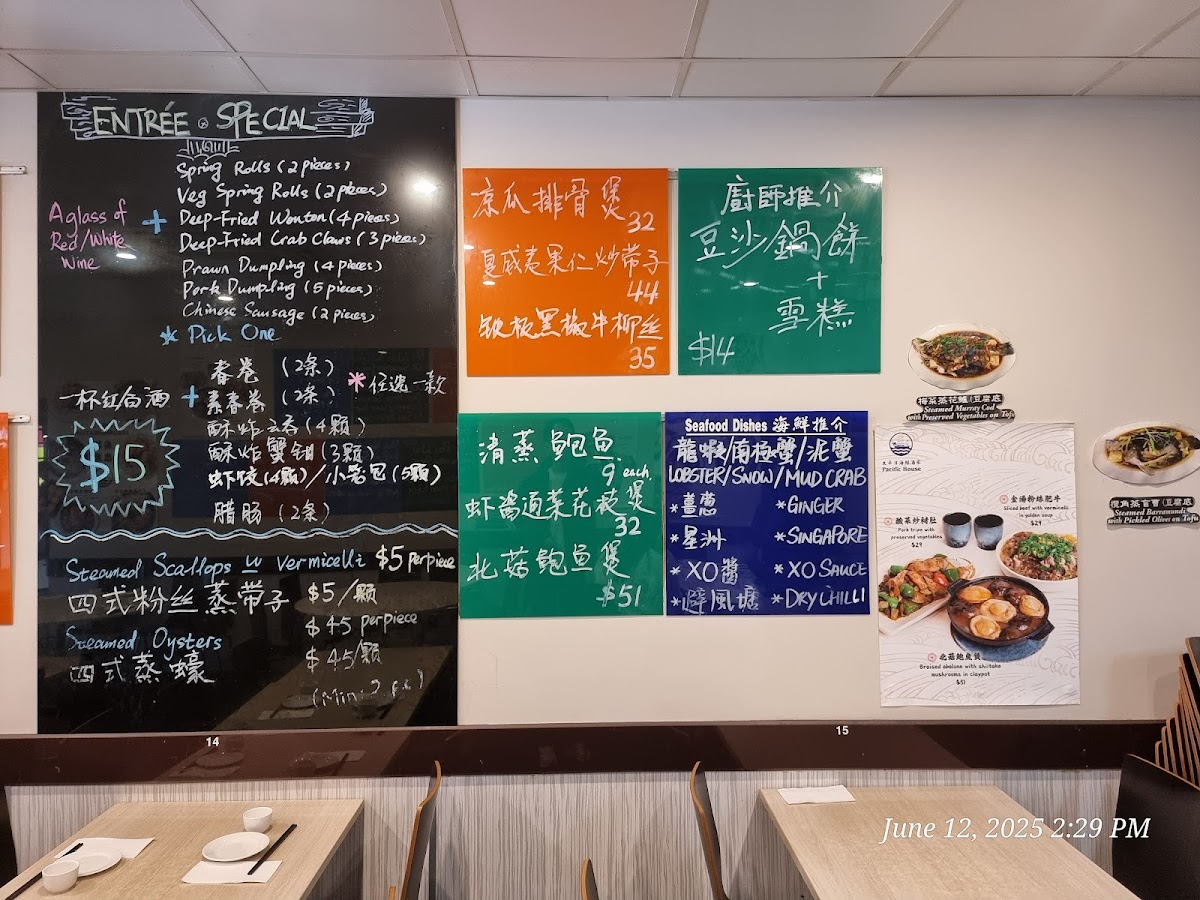 ENTRÉE SPECIAL
MENU
Spring Rolls (2 pieces)
Veg Spring Rolls (2 pieces)
Deep-Fried Wonton (4 pieces)
Deep-Fried Crab Claws (3 pieces)
Prawn Dumpling (4 pieces)
Pork Dumpling (5 pieces)
Chinese Sausage (2 pieces)
A glass of
Red/White
Wine
+
* Pick One
春卷 (2条)
素春卷 (2条)
酥炸云吞 (4颗)
酥炸蟹钳 (3颗)
虾饺 (4颗)/小笼包 (5颗)
腊肠 (2条)
*任选一款
一杯红白酒 +
$15
Steamed Scallops w Vermicelli $5 per piece
四式粉丝蒸带子 $5/颗
Steamed Oysters $4.5 per piece
四式蒸蠔 $4.5/颗
凉瓜排骨煲
32
夏威夷果仁炒带子
44
铁板黑椒牛柳丝
35
廚師推介
豆沙鍋餅
+
雪糕
$14
清蒸鲍鱼
9 each
虾酱通菜花枝煲
32
北菇鲍鱼煲
$51
Seafood Dishes 海鮮推介
龍蝦/南極蟹/泥蟹
LOBSTER/SNOW/MUD CRAB
*薑蔥 *GINGER
*星洲 *SINGAPORE
*XO醬 *XO SAUCE
*避風塘 *DRY CHILLI
梅菜蒸花鱸(豆腐底
Steamed Murray Cod
with Preserved Vegetables on Tofu
欖角蒸盲曹(豆腐底
Steamed Barramundi
with Pickled Olives on Tofu
太平洋海鮮酒家
Pacific House
金湯粉絲肥牛
Sliced beef with vermicelli
in golden soup
$29
鹹菜炒豬肚
Pork tripe with
preserved vegetables
$29
北菇鮑魚煲
Braised abalone with shiitake
mushrooms in claypot
$51
14
15
June 12, 2025 2:29 PM